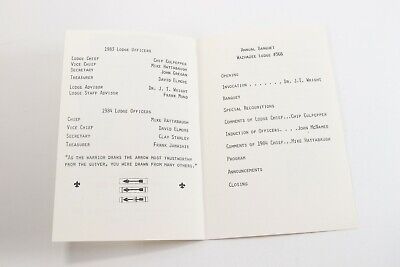 1983 Lodge Officers
Lodge Chief Chip Culpepper
Vice Chief Mike Hattabaugh
Secretary John Gregan
Treasurer David Elmore
Lodge Advisor Dr. J. I. Wright
Lodge Staff Advisor Frank Mond
1984 Lodge Officers
Chief Mike Hattabaugh
Vice Chief David Elmore
Secretary Clay Stanley
Treasurer Frank
"As the warrior draws the arrow most trustworthy
from the quiver, you were drawn from many others."
Annual Banquet
Wazhazee Lodge #366
Opening
Invocation . . . . . . . Dr. J.I. Wright
Banquet
Special Recognitions
Comments of Lodge Chief...Chip Culpepper
Induction of Officers. . . .John McNamee
Comments of 1984 Chief...Mike Hattabaugh
Program
Announcements
Closing